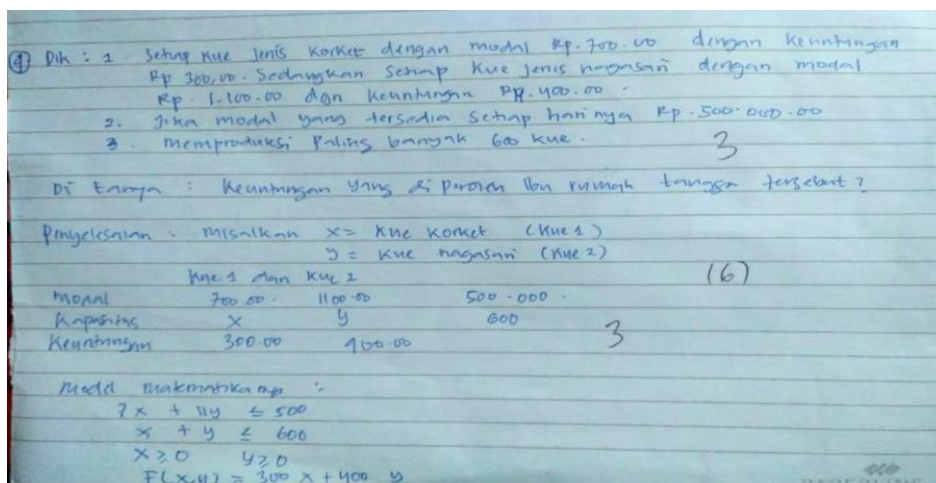 ④ Dik : 1. Setiap Kue Jenis Korket dengan modal Rp. 700.00 dengan Keuntungan
Rp 300,00. Sedangkan Setiap Kue Jenis nagasari dengan modal
Rp. 1.100.00 dgn Keuntungan Rp. 400.00.
2. Jika modal yang tersedia Setiap harinya Rp. 500.000.00
3. memproduksi Paling banyak 600 Kue.
3
Di tanya : Keuntungan yang di peroleh Ibu rumah tangga tersebut?
Penyelesaian : misalkan x = Kue Korket (Kue 1)
y = Kue nagasari (Kue 2)
Kue 1 dan Kue 2
(6)
Modal 700.00. 1100.00 500.000.
Kapasitas x y 600
Keuntungan 300.00 400.00
3
Model matematika :
7x + 11y ≤ 500
x + y ≤ 600
x ≥ 0 y ≥ 0
F(x,y) = 300 x + 400 y